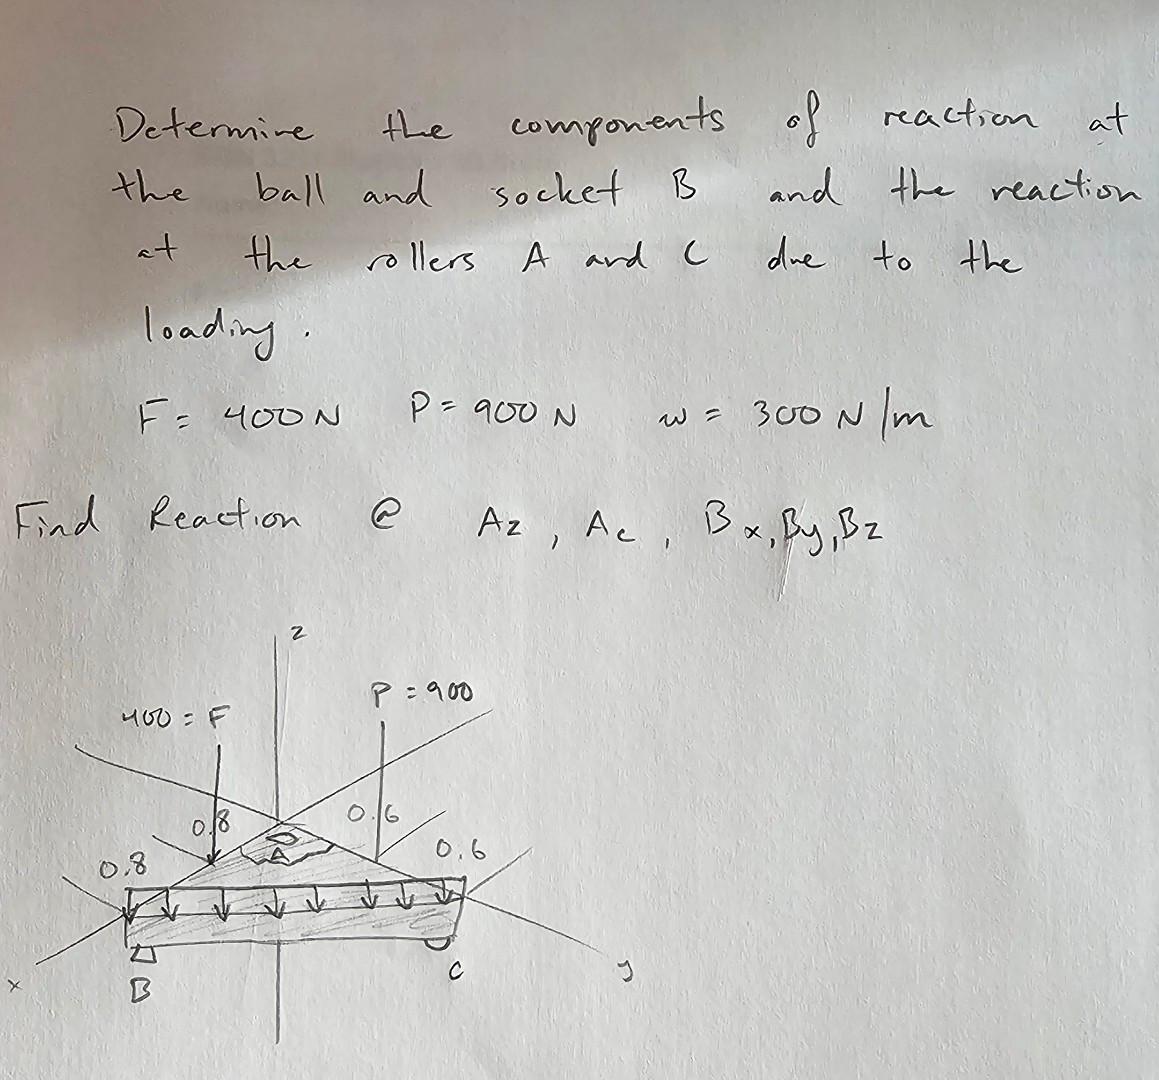 Determine the components of reaction at
the ball and socket B and the reaction
at the rollers A and C due to the
loading.
F = 400 N P = 900 N w = 300 N/m
Find Reaction @ Az, Ac, Bx, By, Bz
z
P = 900
400 = F
0.8 0.6
A
0.8 0.6
B C
x y